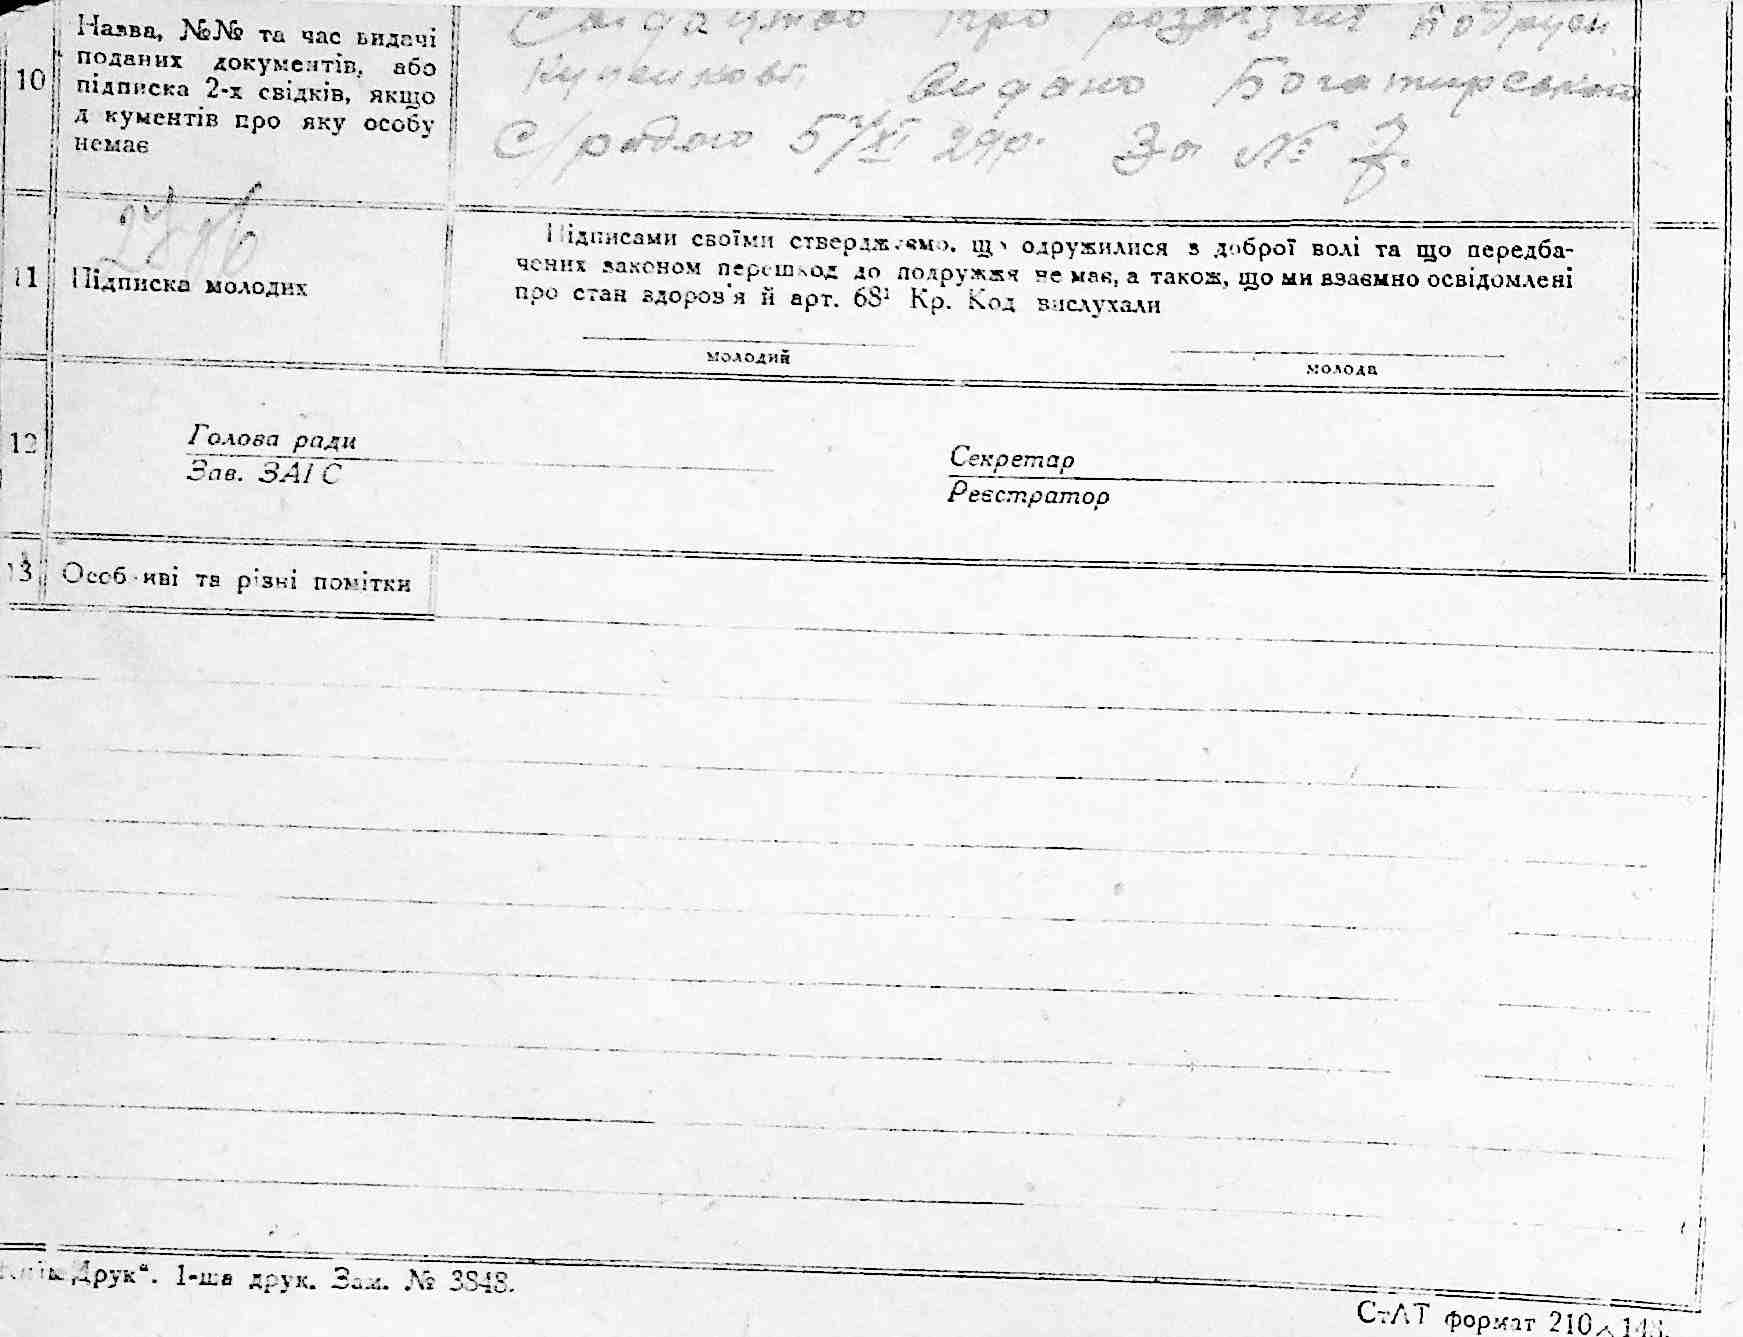 10
Назва, №№ та час видачі
поданих документів, або
підписка 2-х свідків, якщо
д кументів про яку особу
немає
Свідоцтво про розвязчий подруж
видано Богатирською
с/радою 5/XI 29р. За № 7.
11
Підписка молодих
Підписами своїми стверджуємо, що одружилися з доброї волі та що передба-
чених законом перешкод до подружжя не має, а також, що ми взаємно освідомлені
про стан здоров'я й арт. 68¹ Кр. Код вислухали
молодий
молода
12
Голова ради
Зав. ЗАГС
Секретар
Реєстратор
13
Особ иві та різні помітки
Друк“. 1-ша друк. Зам. № 3848.
СтАТ формат 210×148.